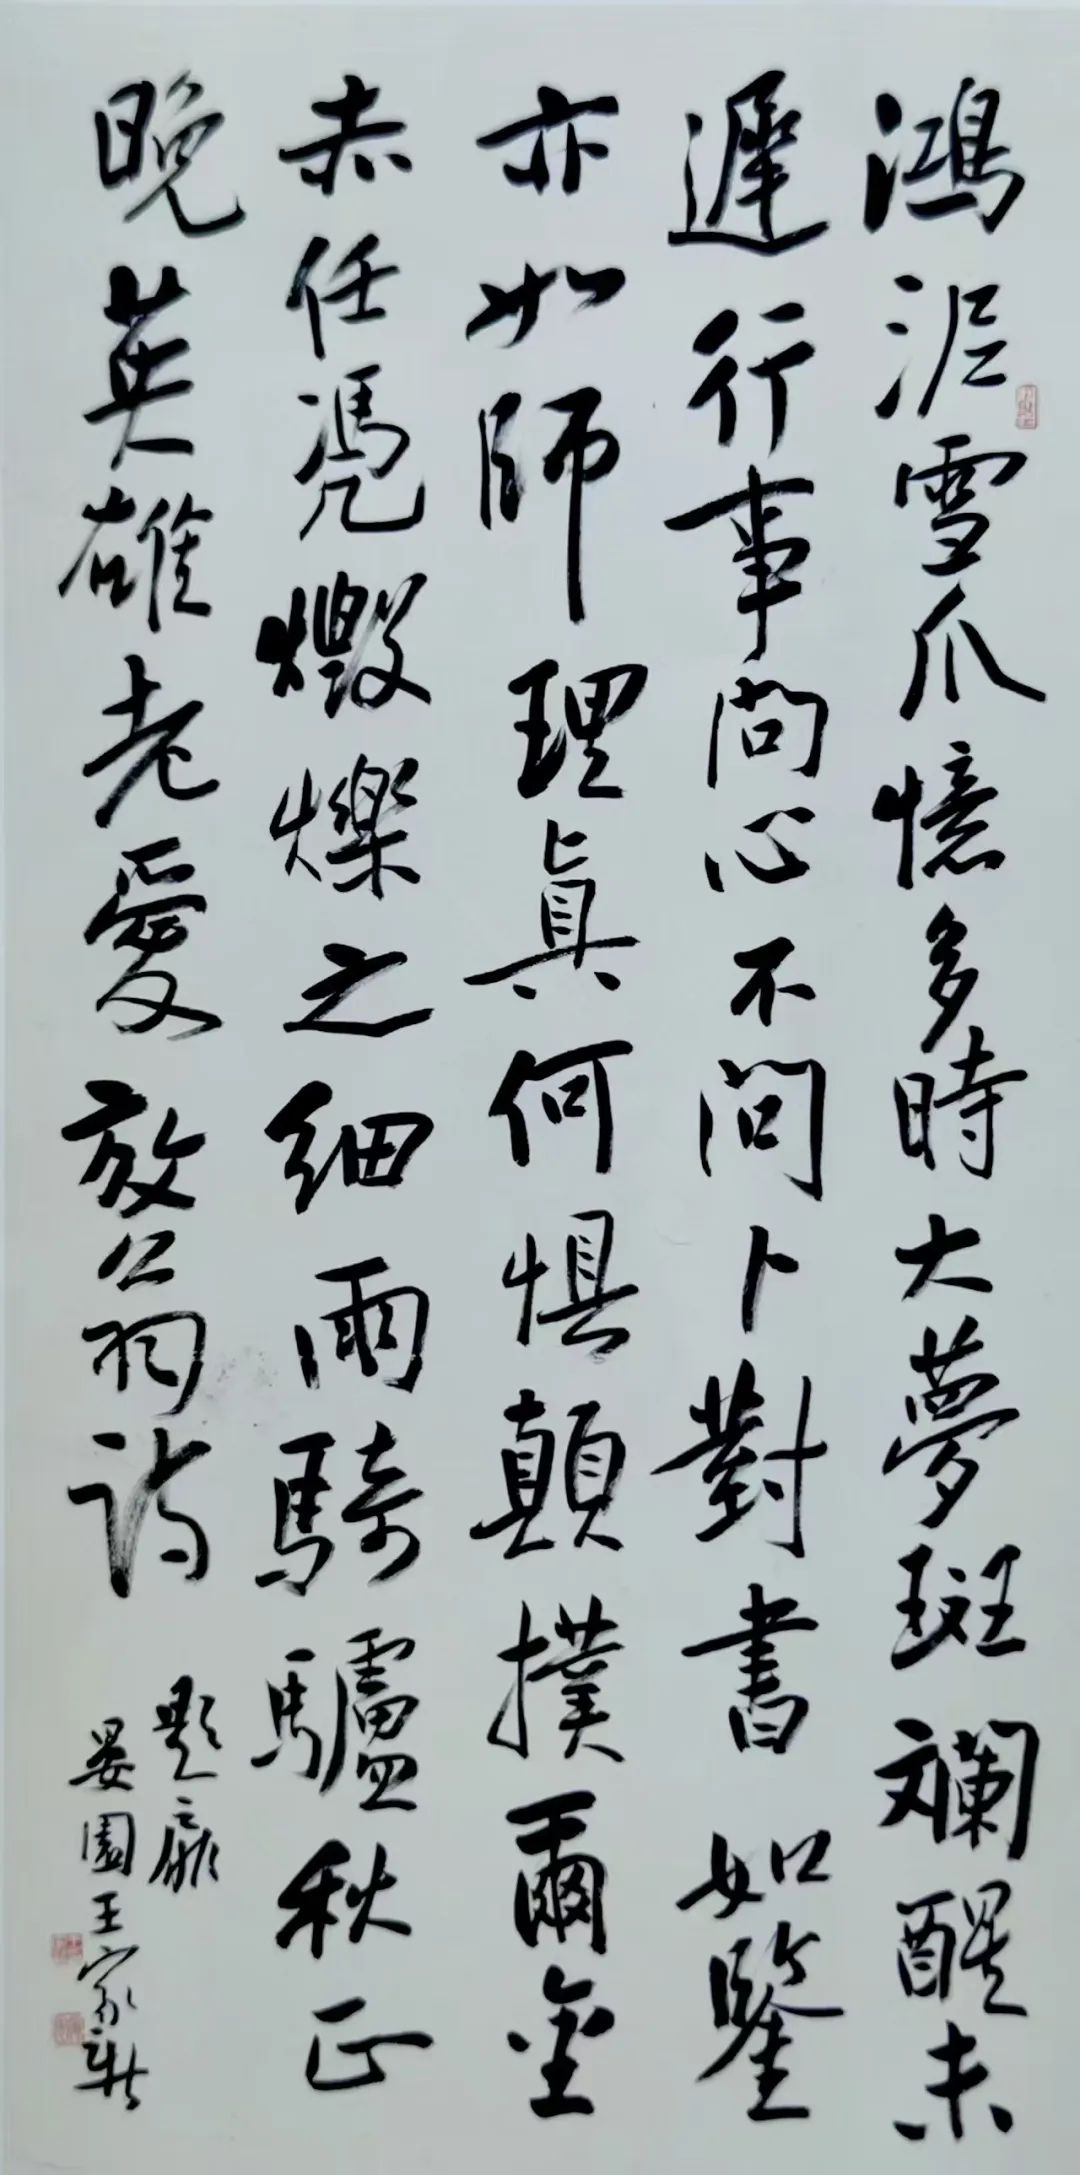 鴻泥雪爪憶多時大夢斑斕醒未
遲行事問心不問卜對書如鑒
亦如師理真何惧顛撲爾金
赤任憑燬爍之細雨騎驢秋正
晚英雄老愛放翁詩
題
晏園王家新